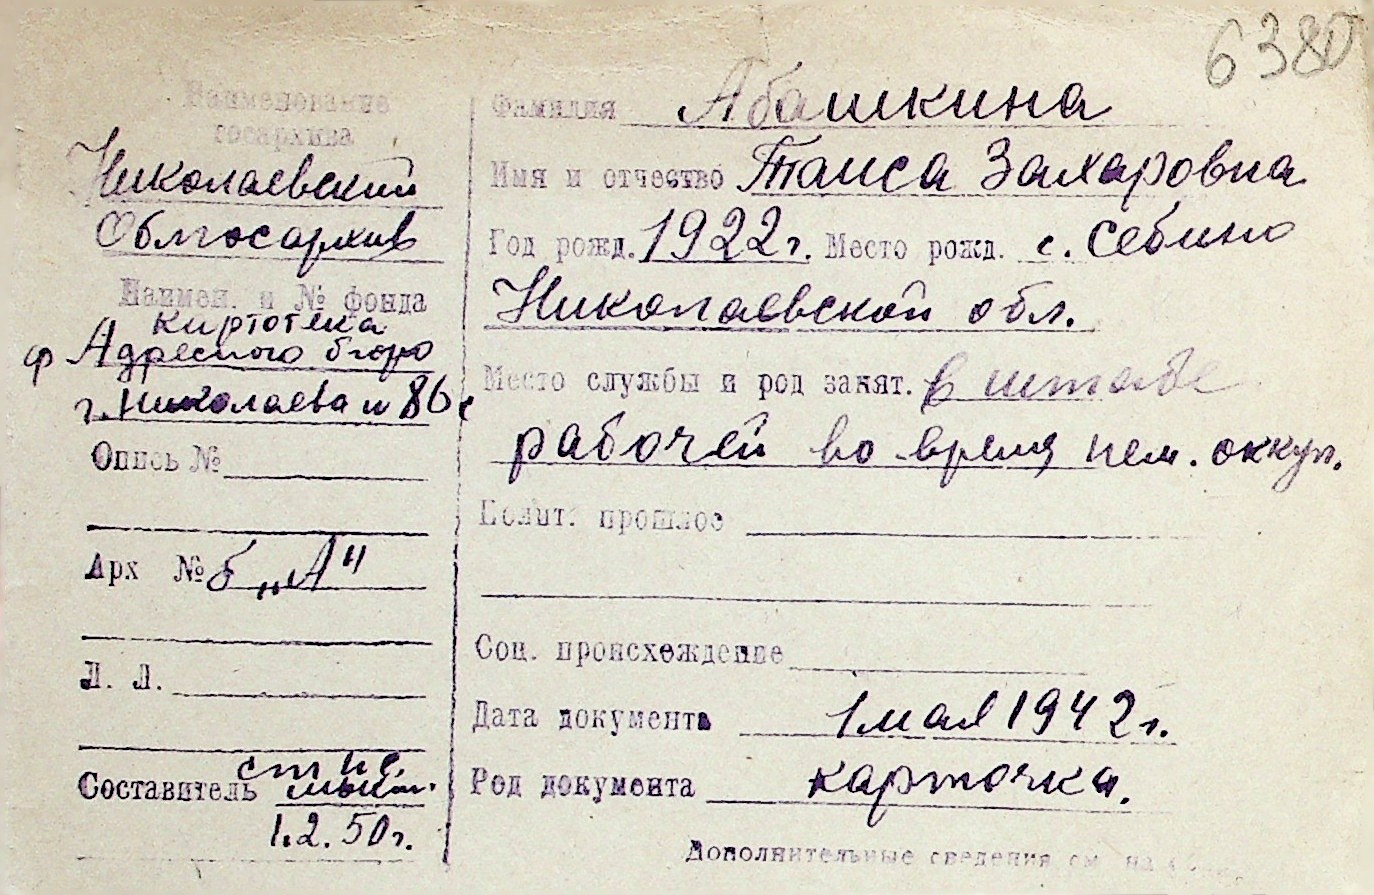 6380
Наименование
госархива
Николаевский
Облгосархив
Наимен. и № фонда
картотека
ф Адресного бюро
г. Николаева и 86
Опись №
Арх № б „А"
Л. Л.
Составитель ст нс.
1.2.50г.
Фамилия Абашкина
Имя и отчество Таиса Захаровна
Год рожд. 1922г. Место рожд. с. Себино
Николаевской обл.
Место службы и род занят. в штабе
рабочей во время нем. оккуп.
Полит. прошлое
Соц. происхождение
Дата документа 1 мая 1942г.
Род документа карточка.
Дополнительные сведения см на